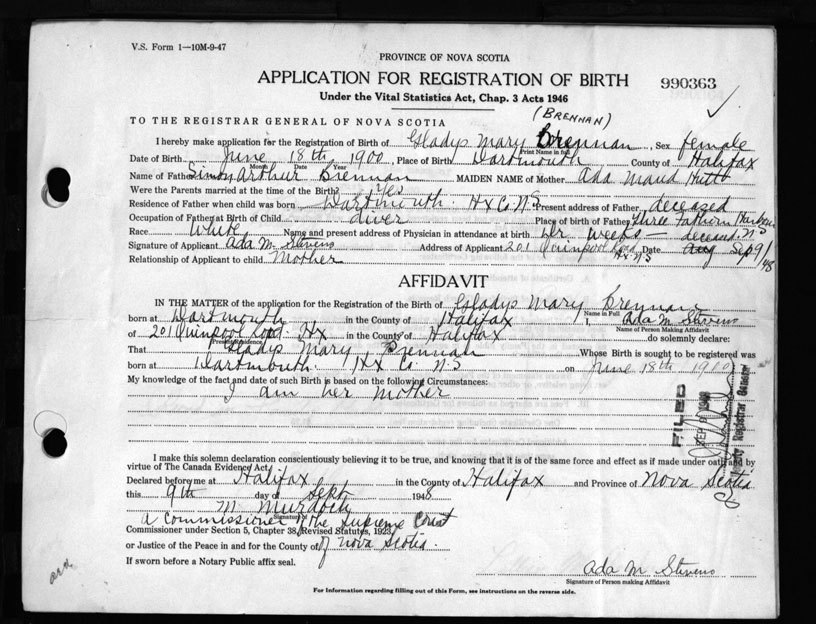 V.S. Form 1—10M-9-47
PROVINCE OF NOVA SCOTIA
APPLICATION FOR REGISTRATION OF BIRTH
990363
Under the Vital Statistics Act, Chap. 3 Acts 1946
(BRENNAN)
TO THE REGISTRAR GENERAL OF NOVA SCOTIA
I hereby make application for the Registration of Birth of Gladys Mary Brennan, Sex female
Print Name in full
Date of Birth June 18th 1900, Place of Birth Dartmouth County of Halifax
Month Date Year
Name of Father Simon Arthur Brennan MAIDEN NAME of Mother Ada Maud Hutt
Were the Parents married at the time of the Birth? Yes
Residence of Father when child was born Dartmouth. Hx Co. N.S. Present address of Father deceased
Occupation of Father at Birth of Child diver Place of birth of Father Three Fathom Harbour N.S
Race White Name and present address of Physician in attendance at birth Weeks — deceased
Signature of Applicant Ada M. Stevens Address of Applicant 201 Quinpool Road Hx. N.S Date Aug Sep 9/48
Relationship of Applicant to child Mother
AFFIDAVIT
IN THE MATTER of the application for the Registration of the Birth of Gladys Mary Brennan
Name in Full
born at Dartmouth in the County of Halifax I, Ada M. Stevens
Name of Person Making Affidavit
of 201 Quinpool Road. Hx in the County of Halifax do solemnly declare:
Present Residence
That Gladys Mary Brennan Whose Birth is sought to be registered was
born at Dartmouth. Hx Co N.S on June 18th 1900
My knowledge of the fact and date of such Birth is based on the following Circumstances:
I am her mother
FILED
SEP 9 1948
Deputy Registrar General
I make this solemn declaration conscientiously believing it to be true, and knowing that it is of the same force and effect as if made under oath and by
virtue of The Canada Evidence Act.
Declared before me at Halifax in the County of Halifax and Province of Nova Scotia
this 9th day of Sept 1948
M Murdoch
Signature of
A Commissioner of the Supreme Court
Commissioner under Section 5, Chapter 38, Revised Statutes, 1923,
or Justice of the Peace in and for the County of of Nova Scotia.
If sworn before a Notary Public affix seal.
Ada M Stevens
Signature of Person making Affidavit
For Information regarding filling out of this Form, see instructions on the reverse side.